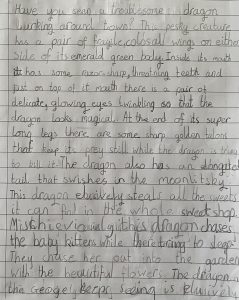 Have you seen a troublesome dragon
lurking around town? This pesky creature
has a pair of fragile, colossal wings on either
side of its emerald green body. Inside its mouth
it has some razor-sharp, threatning teeth and
just on top of it mouth there is a pair of
delicate, glowing eyes twinkling so that the
dragon looks magical. At the end of its super
long legs there are some sharp golden talons
that keep its prey still while the dragon is trying
to kill it. The dragon also has an elongated
tail that swishes in the moonlitsky.
This dragon elusively steals all the sweets
it can find in the whole sweetshop.
this dragon chases
the baby kittens while there trying to sleep.
They chase her out into the garden
with the beautiful flowers. The dragon,
the George! Beeps